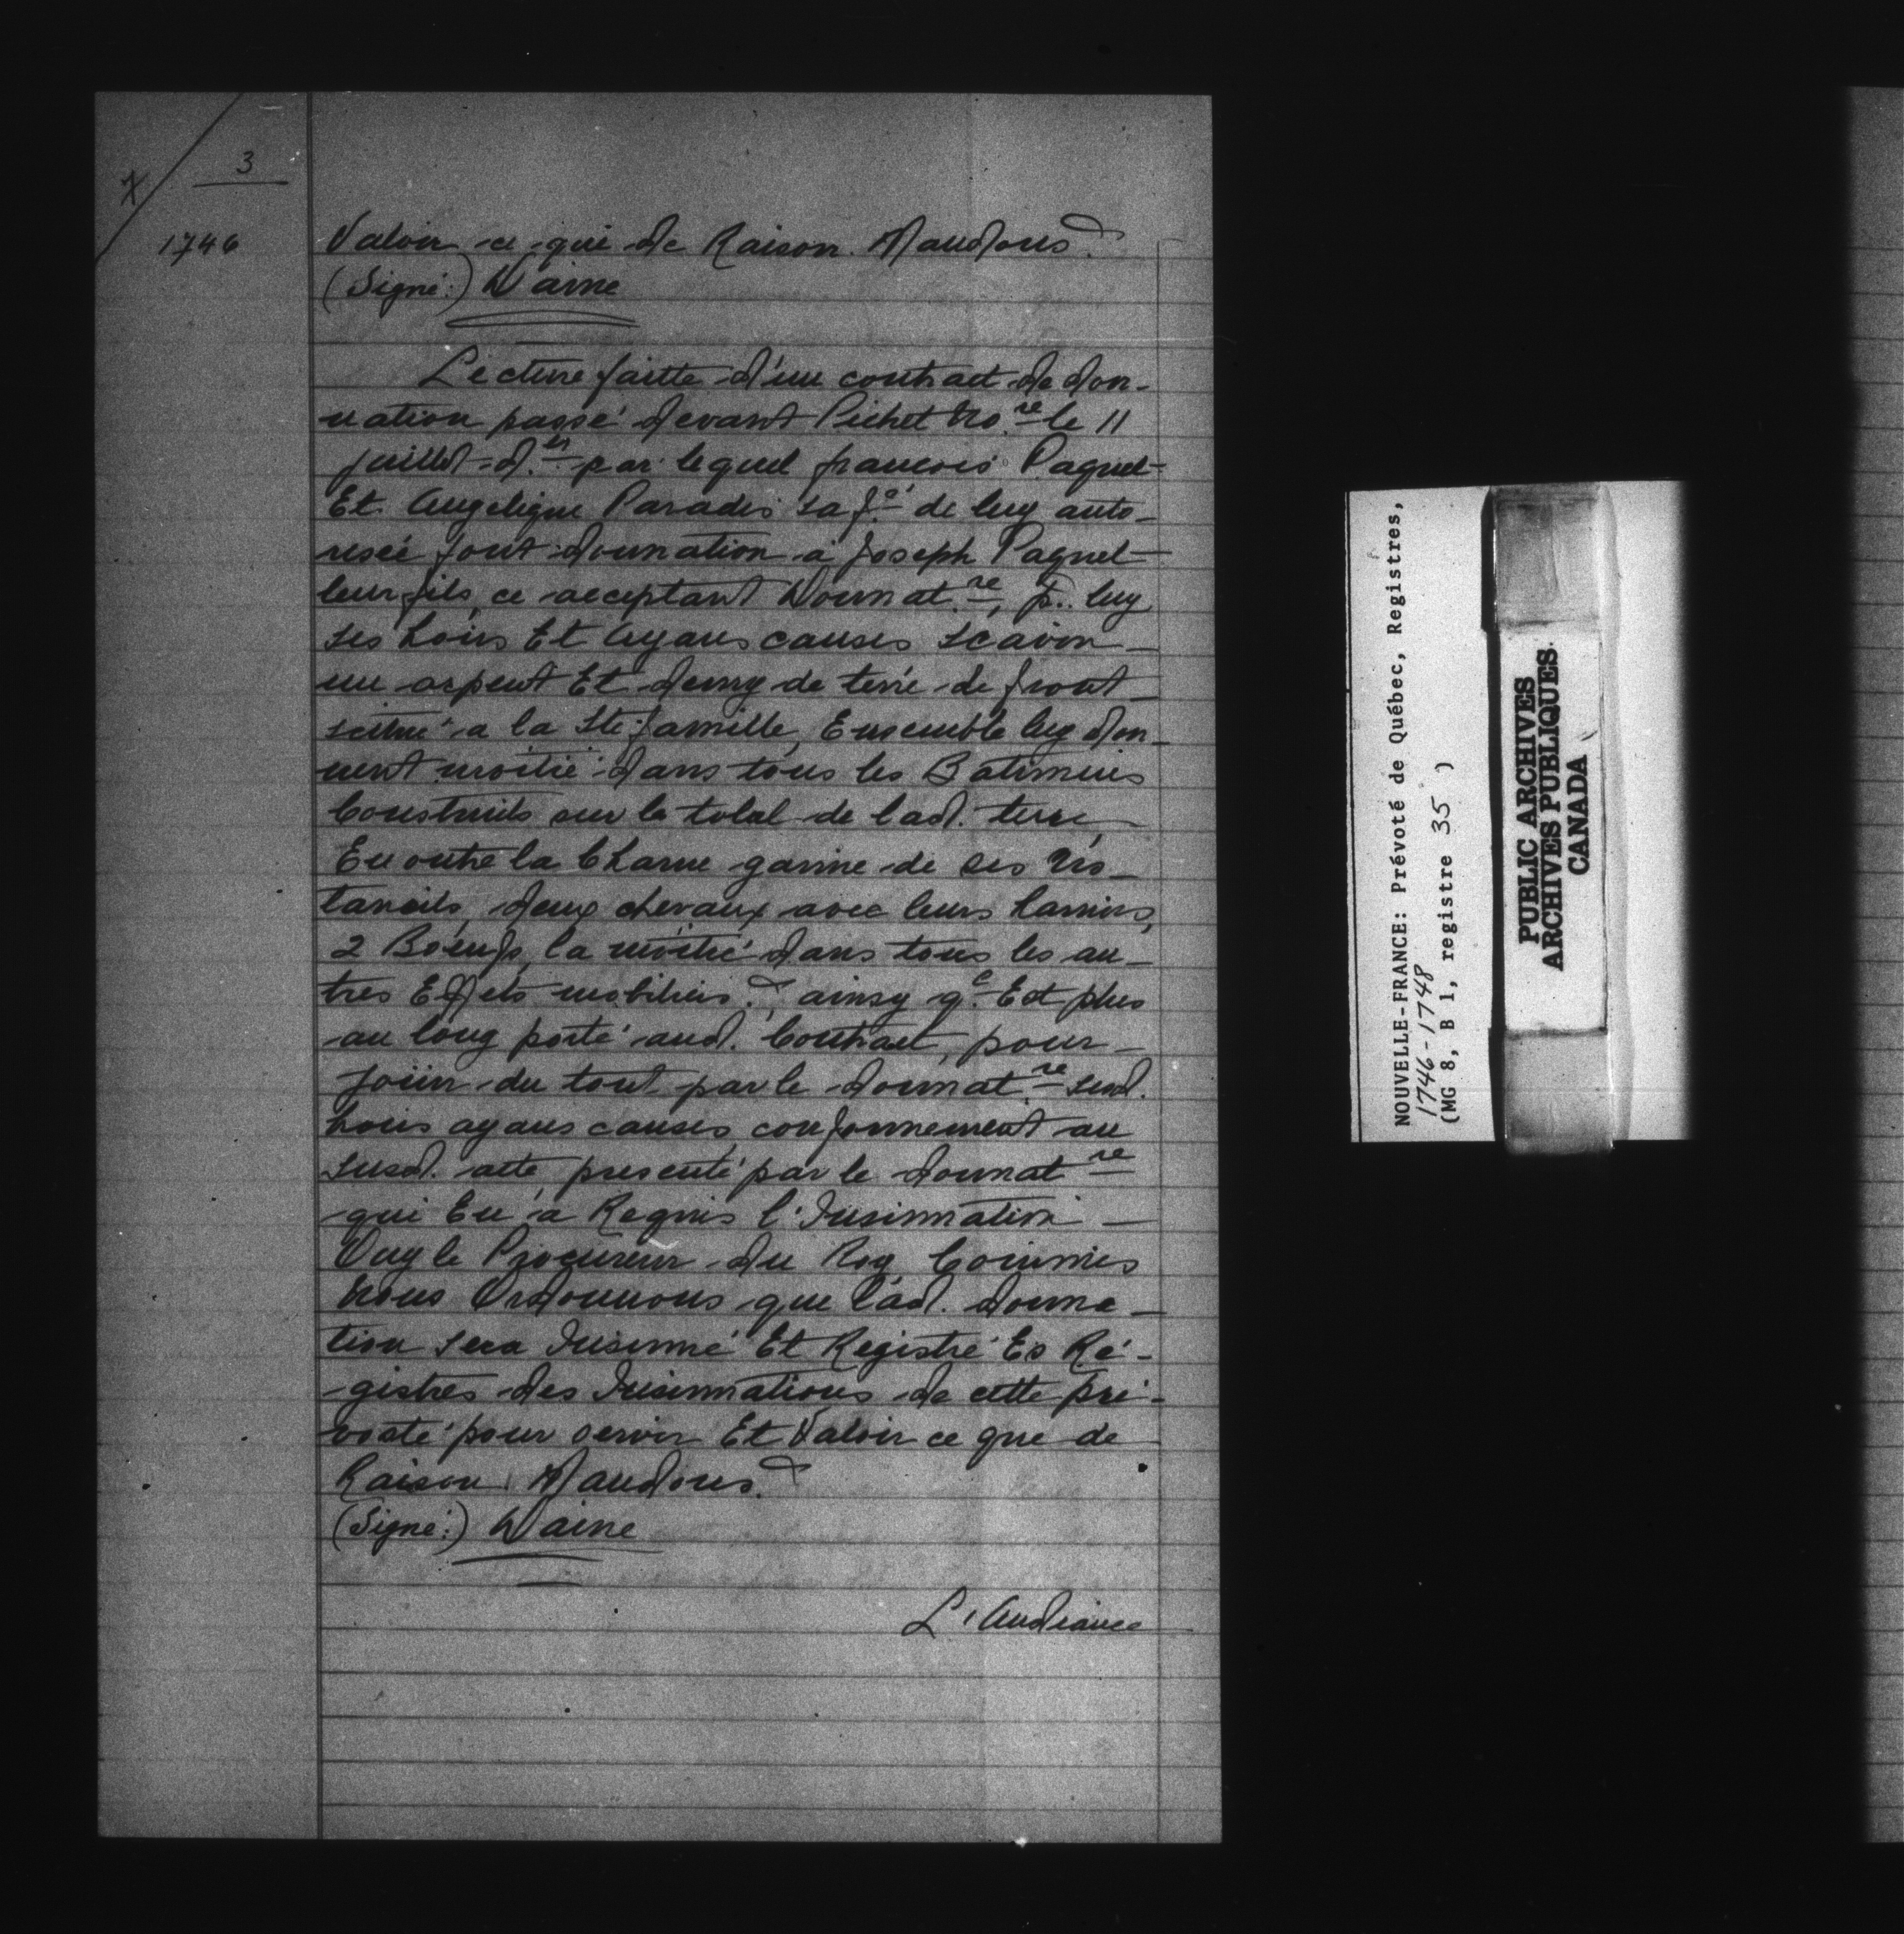 3
1746
Valoir ce qui de Raison Mandons &
(Signé:) Daine
Lecture faitte d'un contract de don-
nation passé devant Pichet No.re le 11
juillet d.er par lequel francois Paquet
Et Angelique Paradis sa f.e de luy auto-
risée font donnation à Joseph Paquet
leur fils, ce acceptant Donnat.re, p. luy
ses hoirs Et Ayans causes Scavoir
un arpent Et demy de terre de front
scitué a la Ste famille, Ensemble luy don-
nent moitié dans tous les Batimens
Construits sur le total de lad. terre
En outre la Charue garnie de ses Us-
tancils, deux chevaux avec leurs harnois,
2 Boeufs, la moitié dans tous les au-
tres Effets mobiliers &, ainsy q.e Est plus
au long porté aud. Contract, pour
joüir du tout par le donnat.re sesd.
hoirs ayans causes conformement au
susd. acte presenté par le donnat re
qui En a Requis l'Insinuation
Ouy le Procureur du Roy Commis
Nous Ordonnons que lad. donna-
tion sera Insinué Et Registré Es Ré-
gistres des Insinuations de cette pré-
vosté pour servir Et Valoir ce que de
Raison Mandons &
(Signé:) Daine
L'Audiance
NOUVELLE-FRANCE: Prévoté de Québec, Registres,
1746-1748
(MG 8, B 1, registre 35 )
PUBLIC ARCHIVES
ARCHIVES PUBLIQUES
CANADA